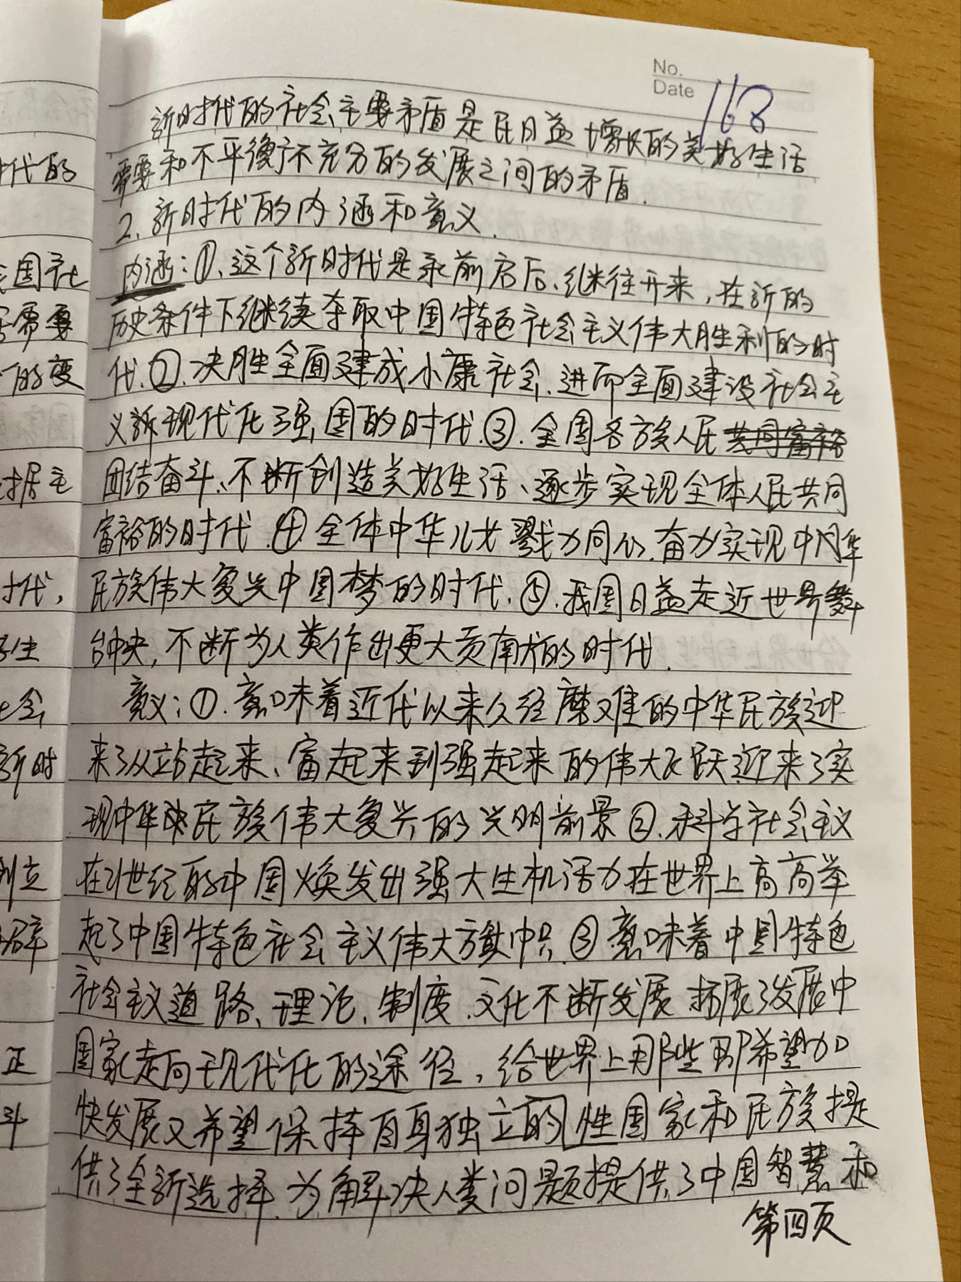 No.
Date
168
新时代的社会主要矛盾是民日益增长的美好生活
需要和不平衡不充分的发展之间的矛盾.
2、新时代的内涵和意义.
内涵:①、这个新时代是承前启后、继往开来,在新的
历史条件下继续夺取中国特色社会主义伟大胜利的时
代.②、决胜全面建成小康社会、进而全面建设社会主
义新现代化强国的时代.③.全国各族人民共同富裕
团结奋斗、不断创造美好生活、逐步实现全体人民共同
富裕的时代.④全体中华儿女戮力同心.奋力实现中国华
民族伟大复兴中国梦的时代.⑤.我国日益走近世界舞
台中央,不断为人类作出更大贡献的时代.
意义:①.意味着近代以来久经磨难的中华民族迎
来了从站起来、富起来到强起来的伟大飞跃迎来了实
现中华民族伟大复兴的光明前景②.科学社会主义
在21世纪的中国焕发出强大生机活力在世界上高高举
起了中国特色社会主义伟大旗帜.③意味着中国特色
社会主义道路、理论、制度.文化不断发展拓展了发展中
国家走向现代化的途径,给世界上那些即希望加
快发展又希望保持自身独立的性国家和民族提
供了全新选择.为解决人类问题提供了中国智慧和
第四页
时代的
国社
需要
的变
据主
时代,
生
社会
新时
创立
正
斗